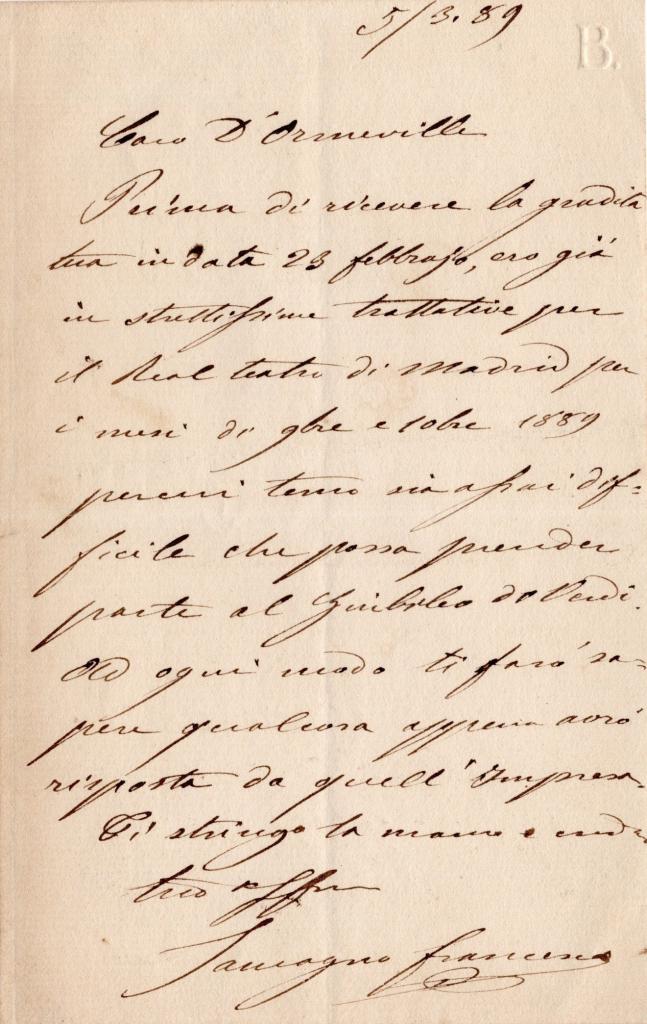 5/3. 89
B.
Caro D'Ormeville
Prima di ricevere la gradita
tua in data 23 febbrajo, ero già
in strettissime trattative per
il Real teatro di Madrid per
i mesi di 9bre e 10bre 1889
percui temo sia assai dif=
ficile che possa prender
parte al Giubileo di Verdi.
Ad ogni modo ti farò sa=
pere qualcosa appena avrò
risposta da quell'Impresa.
Ti stringo la mano e
tuo affmo
Tamagno Francesco